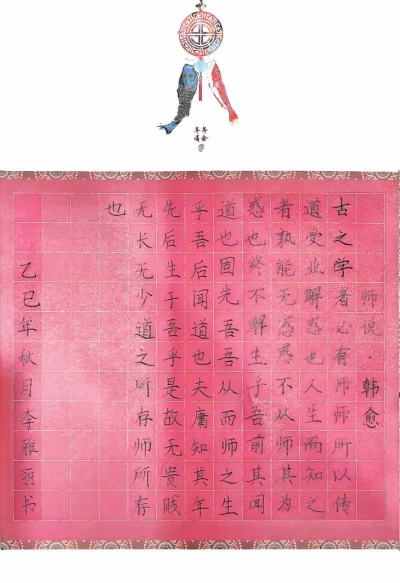 年年
有余
师说·韩愈
古之学者必有师师所以传
道受业解惑也人生而知之
者孰能无惑惑不从师其为
惑也终不解生于吾前其闻
道也固先吾吾从而师之生
乎吾后闻道也夫庸知其年
先后生于吾乎是故无贵贱
无长无少道之所存师所存
也
乙巳年秋月李雅丽书